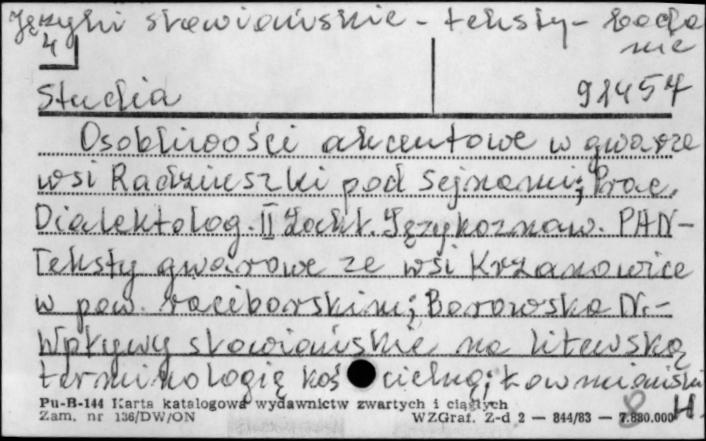 Języki słowiańskie - teksty - bada
nie
4
Studia 91457
Osobliwości akcentowe w gwarze
wsi Radziuszki pod Sejnami; Prac.
Dialektolog. II Zakł. Językoznaw. PAN -
Teksty gwarowe ze wsi Krzanowice
w pow. raciborskim; Borowska N. -
Wpływy słowiańskie na litewską
terminologię kościelną; Łowmiański
H.
Pu-B-144 Karta katalogowa wydawnictw zwartych i ciągłych
Zam. nr 136/DW/ON WZGraf. Z-d 2 — 844/83 — 7.880.000